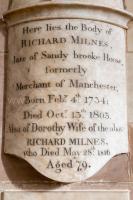 Here lies the Body of
RICHARD MILNES,
late of Sandy brooke House,
formerly
Merchant of Manchester,
Born Feb.y 4th 1734;
Died Oct.r 13th 1803.
Also of Dorothy Wife of the above
RICHARD MILNES,
who Died May 28th 1816
Aged 79.